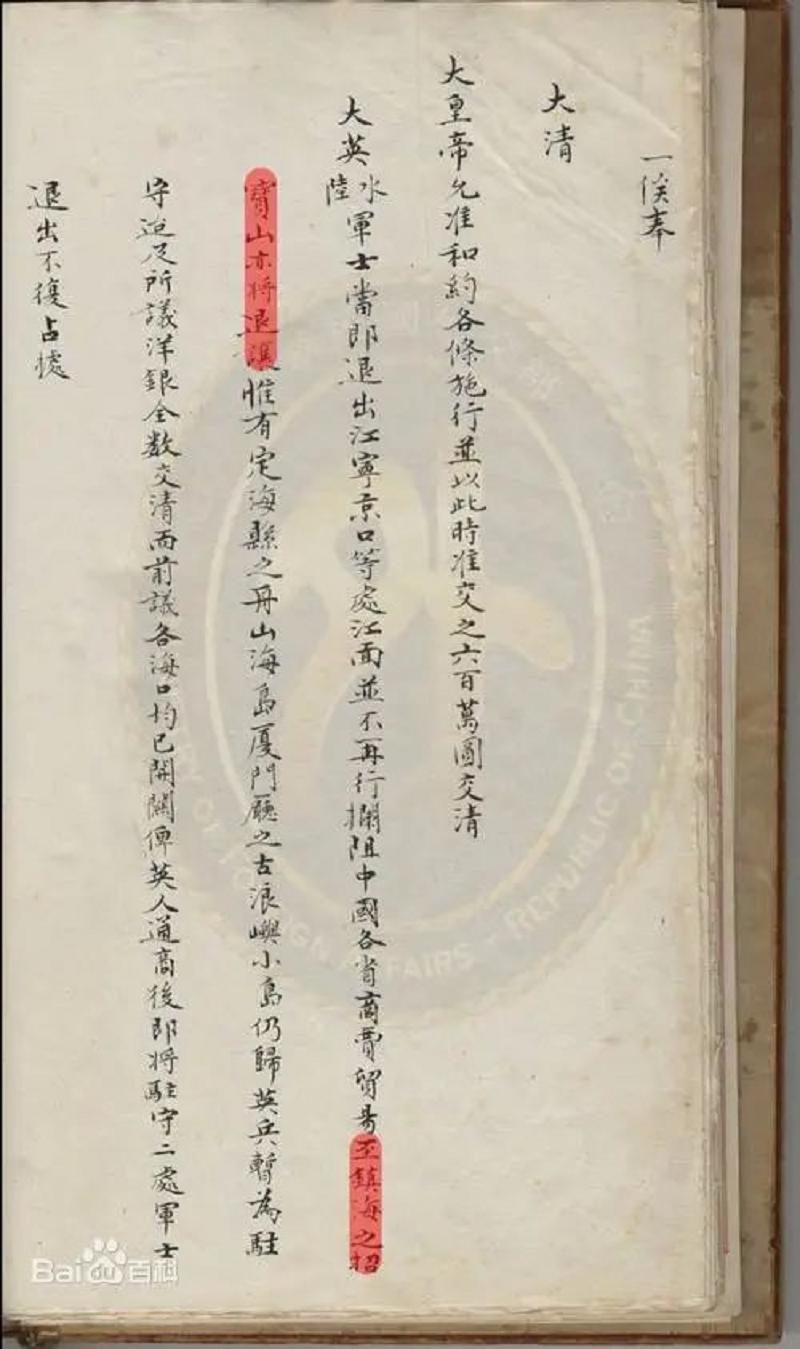 一俟奉
大清
大皇帝允准和約各條施行並以此時准交之六百萬圓交清
大英水陸軍士當即退出江寧京口等處江面並不再行攔阻中國各省商賈貿易至鎮海之招
寶山亦將退讓惟有定海縣之舟山海島廈門廳之古浪嶼小島仍歸英兵暫為駐
守迨及所議洋銀全數交清而前議各海口均已開闢俾英人通商後即將駐守二處軍士
退出不復占據
OF FOREIGN AFFAIRS - REPUBLIC OF CHINA
Baidu百科